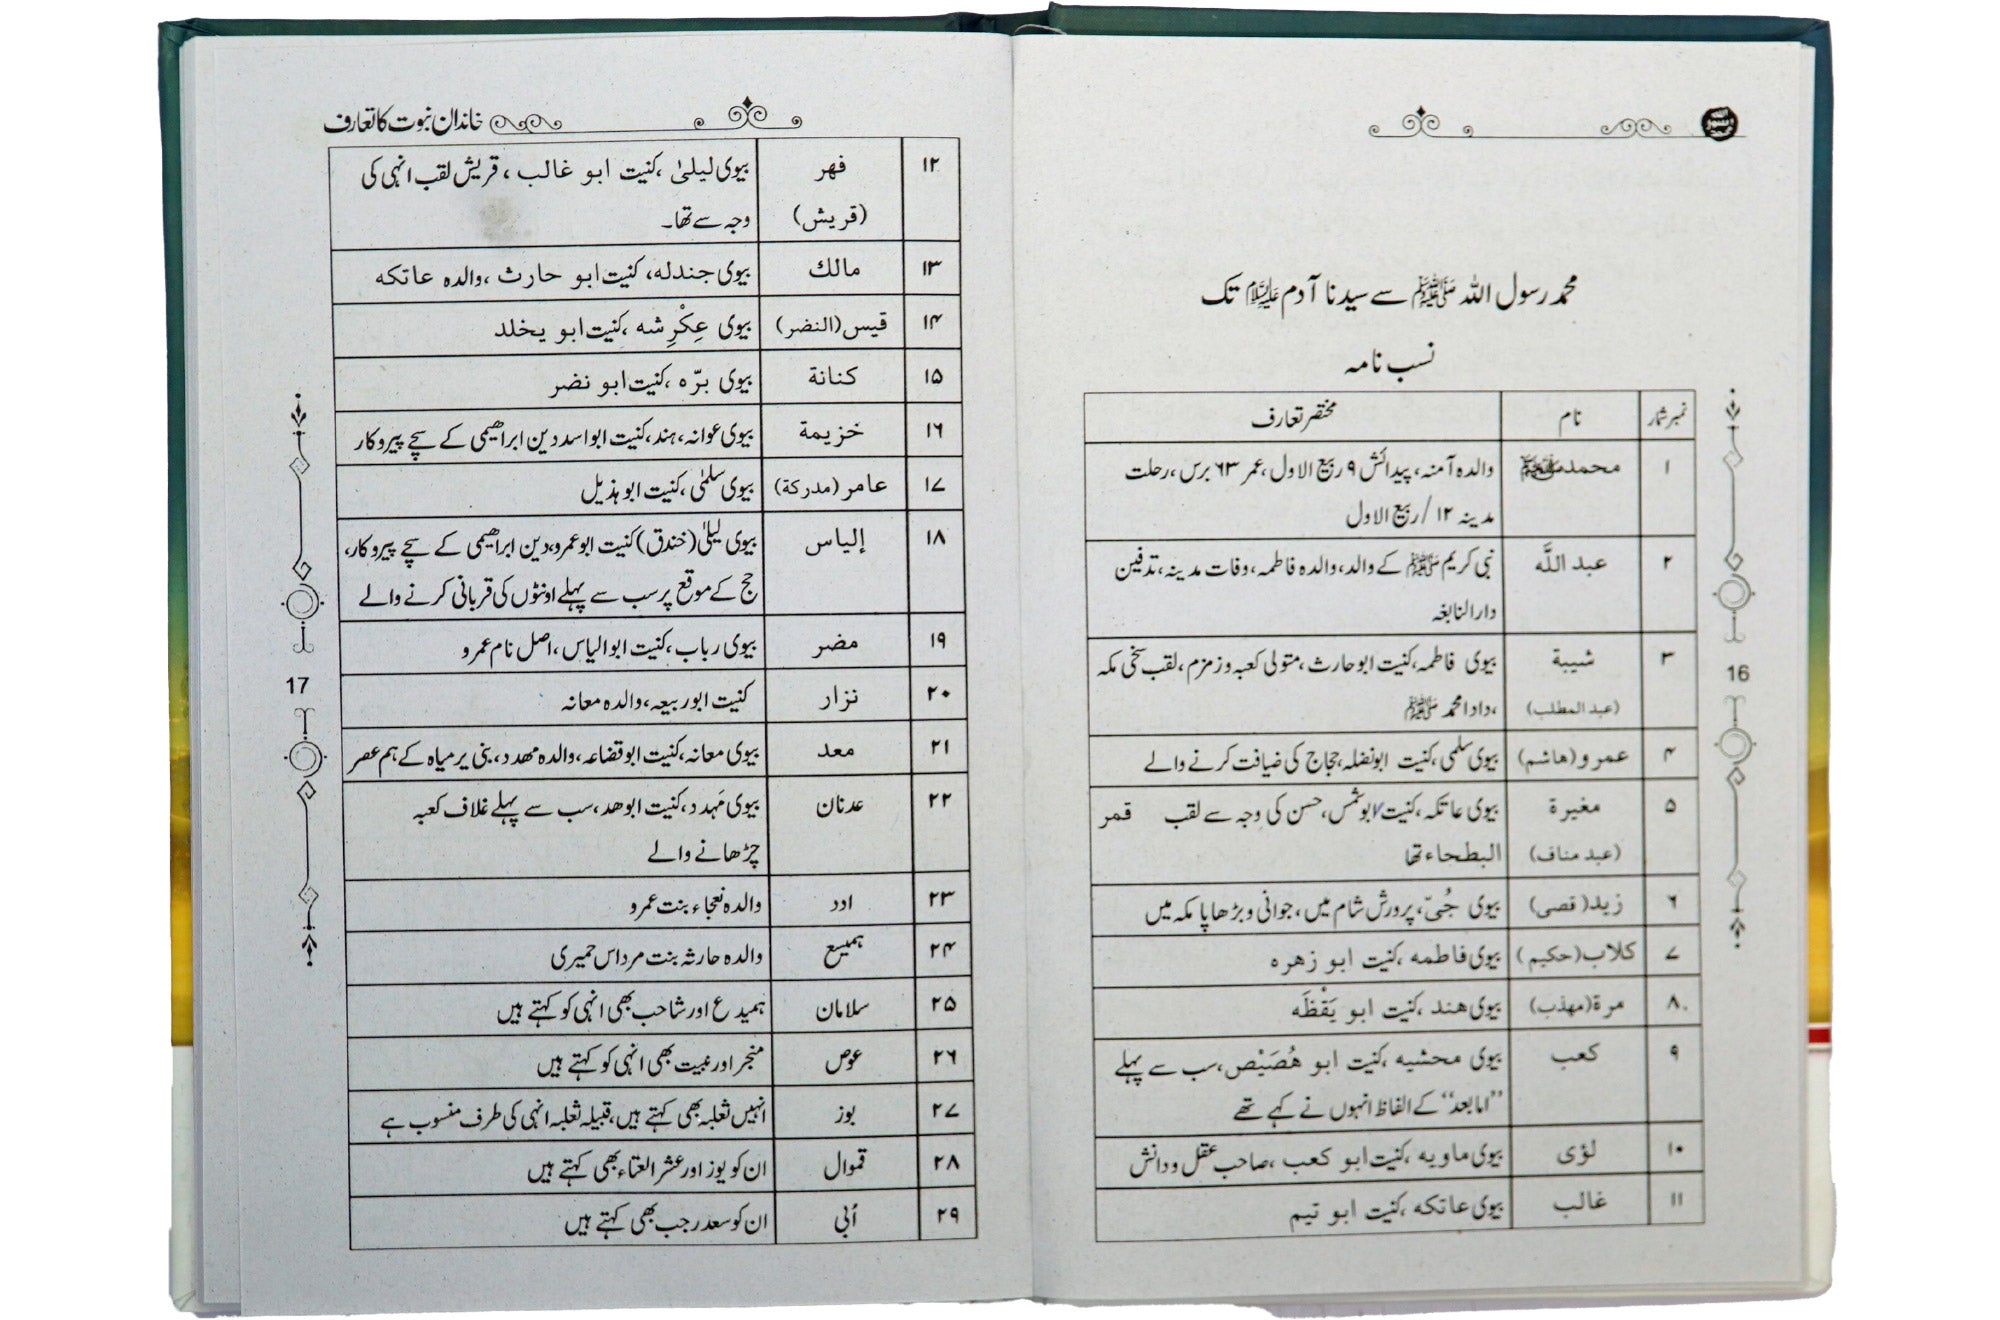 محمد رسول اللہ ﷺ سے سیدنا آدم علیہ السلام تک
نسب نامہ
نمبر شمار نام مختصر تعارف
۱ محمد ﷺ والدہ آمنہ، پیدائش ۹ ربیع الاول، عمر ۶۳ برس، رحلت
مدینہ ۱۲/ ربیع الاول
۲ عبد اللہ نبی کریم ﷺ کے والد، والدہ فاطمہ، وفات مدینہ، تدفین
دارالنابغہ
۳ شیبة بیوی فاطمہ، کنیت ابو حارث، متولی کعبہ و زمزم، لقب سخی مکہ
(عبدالمطلب) ،دادا محمد ﷺ
۴ عمرو (هاشم) بیوی سلمی، کنیت ابونضلہ، حجاج کی ضیافت کرنے والے
۵ مغیرة بیوی عاتکہ، کنیت ابو شمس، حسن کی وجہ سے لقب قمر
(عبد مناف) البطحاء تھا
۶ زید (قصی) بیوی حُبیّ، پرورش شام میں، جوانی و بڑھاپا مکہ میں
۷ کلاب (حکیم) بیوی فاطمه، کنیت ابو زهره
۸ مرة (مهذب) بیوی هند، کنیت ابو یَقْظَه
۹ کعب بیوی محشیه، کنیت ابو هُصَیْص، سب سے پہلے
”اما بعد“ کے الفاظ انہوں نے کہے تھے
۱۰ لؤی بیوی ماویه، کنیت ابو کعب، صاحب عقل و دانش
۱۱ غالب بیوی عاتکه، کنیت ابو تیم
16
خاندان نبوت کا تعارف
۱۲ فهر بیوی لیلیٰ، کنیت ابو غالب، قریش لقب انہی کی
(قریش) وجہ سے تھا۔
۱۳ مالك بیوی جندله، کنیت ابو حارث، والدہ عاتکه
۱۴ قیس (النضر) بیوی عِکْرِشه، کنیت ابو یخلد
۱۵ کنانة بیوی برّه، کنیت ابو نضر
۱۶ خزیمة بیوی عوانہ، ہند، کنیت ابو اسد دین ابراهیمی کے سچے پیروکار
۱۷ عامر (مدرکة) بیوی سلمٰی، کنیت ابو ہذیل
۱۸ إلیاس بیوی لیلیٰ (خندق) کنیت ابو عمرو، دین ابراهیمی کے سچے پیروکار،
حج کے موقع پر سب سے پہلے اونٹوں کی قربانی کرنے والے
۱۹ مضر بیوی رباب، کنیت ابو الیاس، اصل نام عمرو
۲۰ نزار کنیت ابو ربیعہ، والدہ معانہ
۲۱ معد بیوی معانہ، کنیت ابو قضاعہ، والدہ مهدد، بنی یرمیاہ کے ہم عصر
۲۲ عدنان بیوی مَہدد، کنیت ابو هد، سب سے پہلے غلاف کعبہ
چڑھانے والے
۲۳ ادد والدہ نعجاء بنت عمرو
۲۴ ہمیسع والدہ حارثہ بنت مرداس حمیری
۲۵ سلامان ہمیدع اور شاحب بھی انہی کو کہتے ہیں
۲۶ عوص منجر اور عبیت بھی انہی کو کہتے ہیں
۲۷ بوز انہیں ثعلبہ بھی کہتے ہیں، قبیلہ ثعلبہ انہی کی طرف منسوب ہے
۲۸ قموال ان کو یوز اور عشر العتاء بھی کہتے ہیں
۲۹ اُبی ان کو سعد رجب بھی کہتے ہیں
17